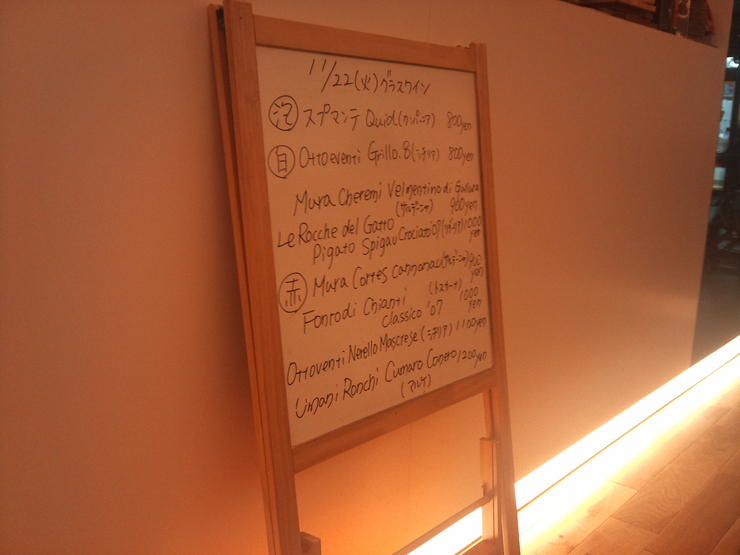 11/22(火)グラスワイン
泡 スプマンテ Quid(カンパーニア) 800yen
白 Ottoeventi Grillo.8(シチリア) 800yen
Mura Cheremi Velmentino di Gallura
(サルデーニャ) 900yen
Le Rocche del Gatto
Pigato Spigau Crociato'07(リグーリア)1000
yen
赤 Mura Cortes Cannonau(サルデーニャ)900
yen
Fontodi Chianti (トスカーナ) 1000
Classico '07 yen
Ottoventi Nerello Mascrese(シチリア)1100yen
Umani Ronchi Cumaro Conero 1200yen
(マルケ)